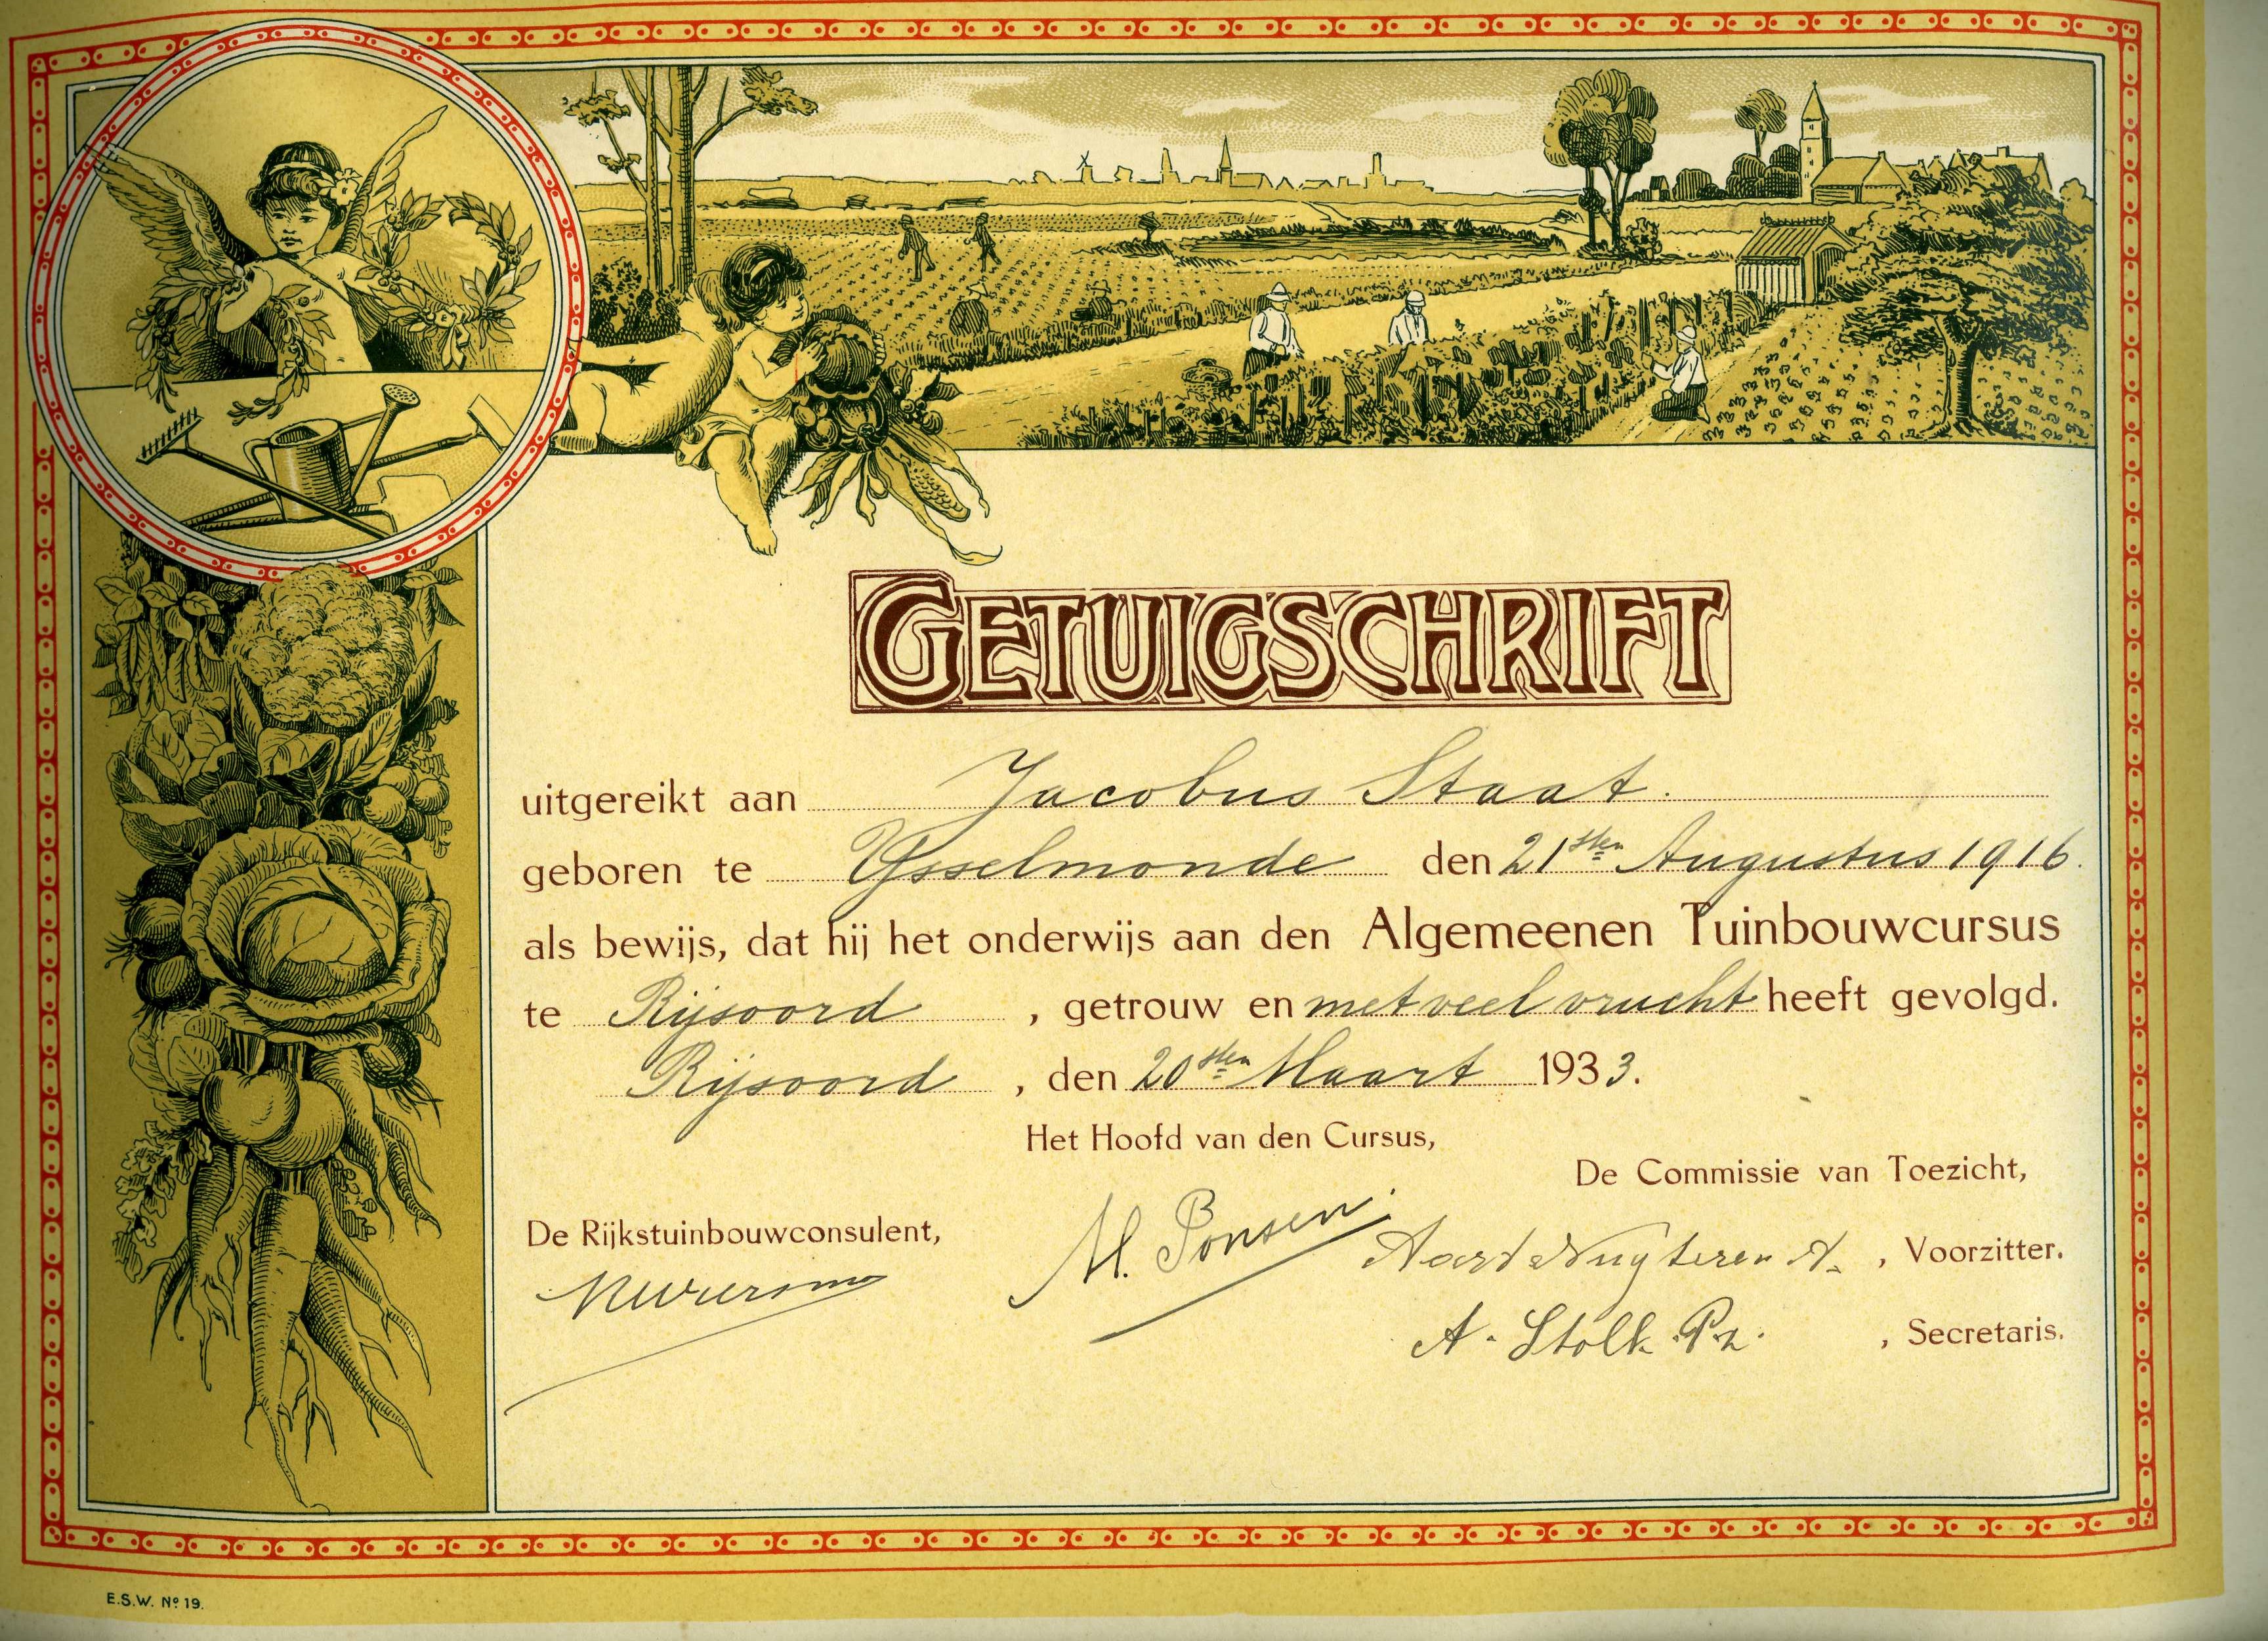 GETUIGSCHRIFT
uitgereikt aan Jacobus Staat.
geboren te IJsselmonde den 21sten Augustus 1916.
als bewijs, dat hij het onderwijs aan den Algemeenen Tuinbouwcursus
te Rijsoord, getrouw en met veel vrucht heeft gevolgd.
Rijsoord, den 20sten Maart 1933.
Het Hoofd van den Cursus,
De Commissie van Toezicht,
De Rijkstuinbouwconsulent,
M. Ponsen
, Voorzitter.
A. Stolk Pz. , Secretaris.
E.S.W. No 19.